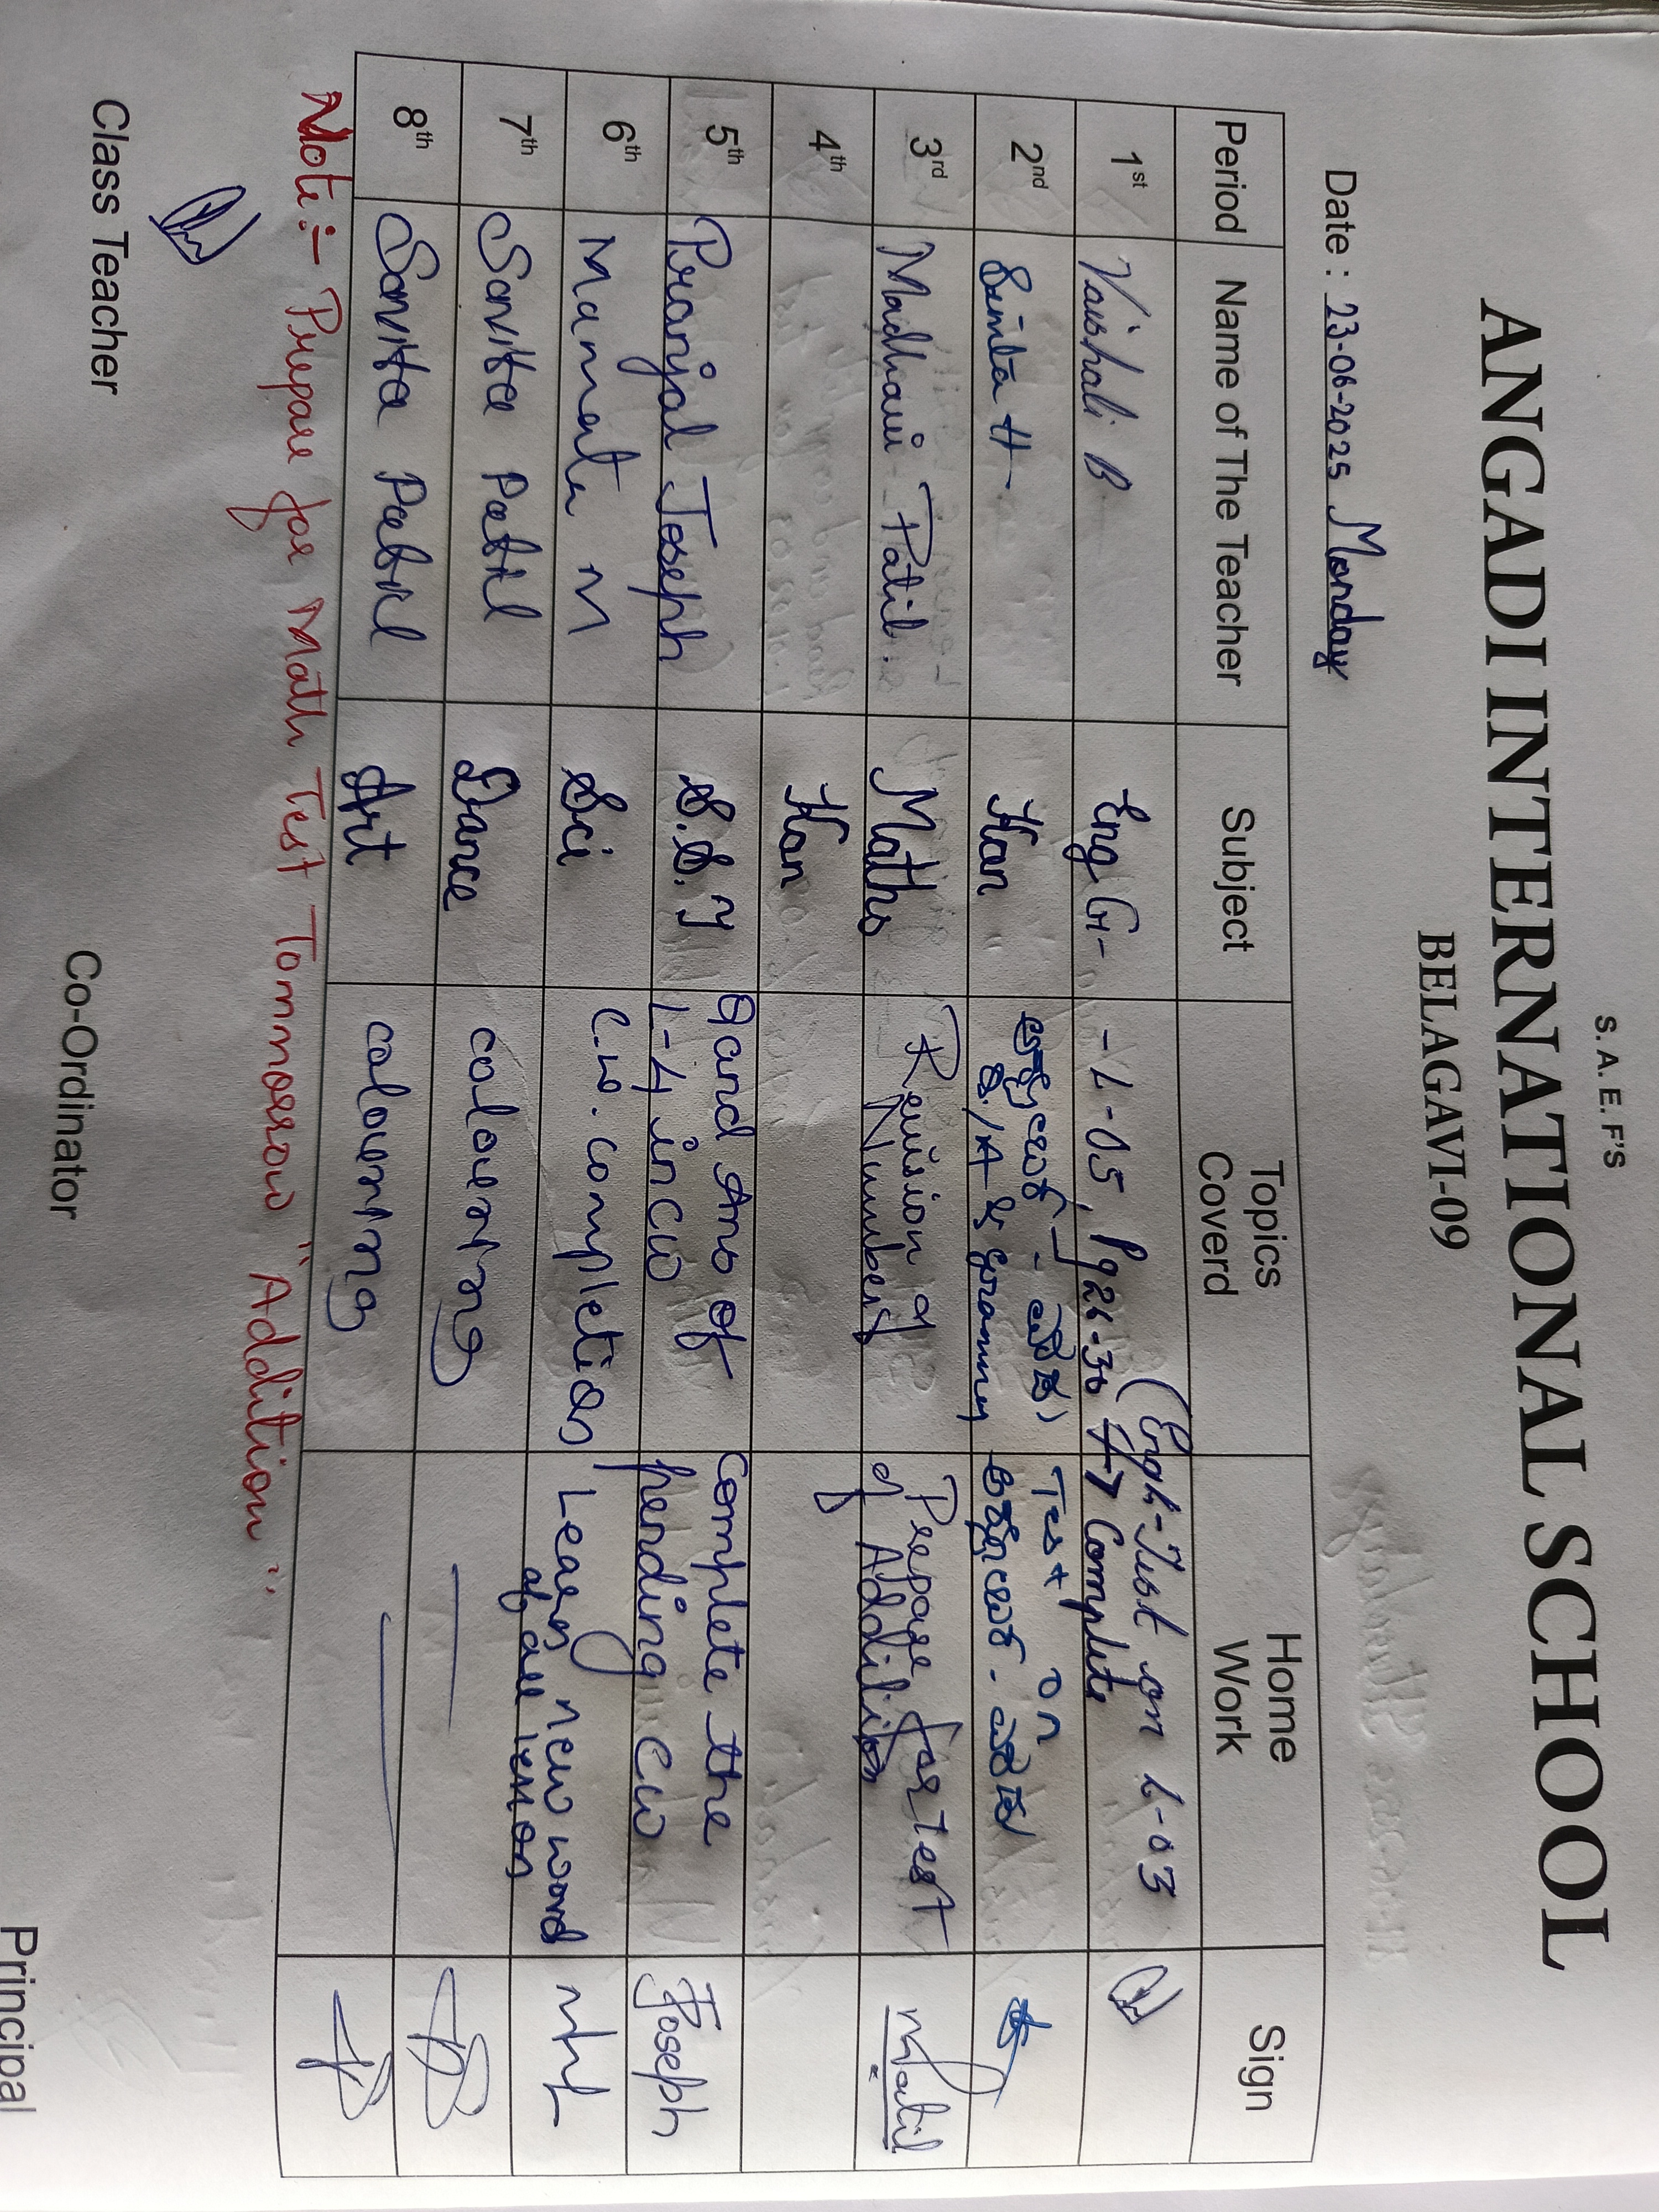 S.A.E.F'S
ANGADI INTERNATIONAL SCHOOL
BELAGAVI-09
Date : 23-06-2025 Monday
Period Name of The Teacher Subject Topics Coverd Home Work Sign
1st Vaishali B Eng Gr - L-05, Pg 26-30 (Eng-Test on L-03
Complete
2nd Smita H Kan Test on
Q/A &
3rd Madhavi Patil. Maths Revision of Prepare for test
Numbers of Addition
4th Kan
5th Pranjal Joseph S.S.T Q and Ans of Complete the Joseph
L-4 in CW pending CW
6th Mamata M Sci C.W. completion Learn new word
of all lesson
7th Savita Patil Dance colouring
8th Savita Patil Art colouring
Note:- Prepare for Math Test Tommorow "Addition".
Class Teacher Co-Ordinator Principal